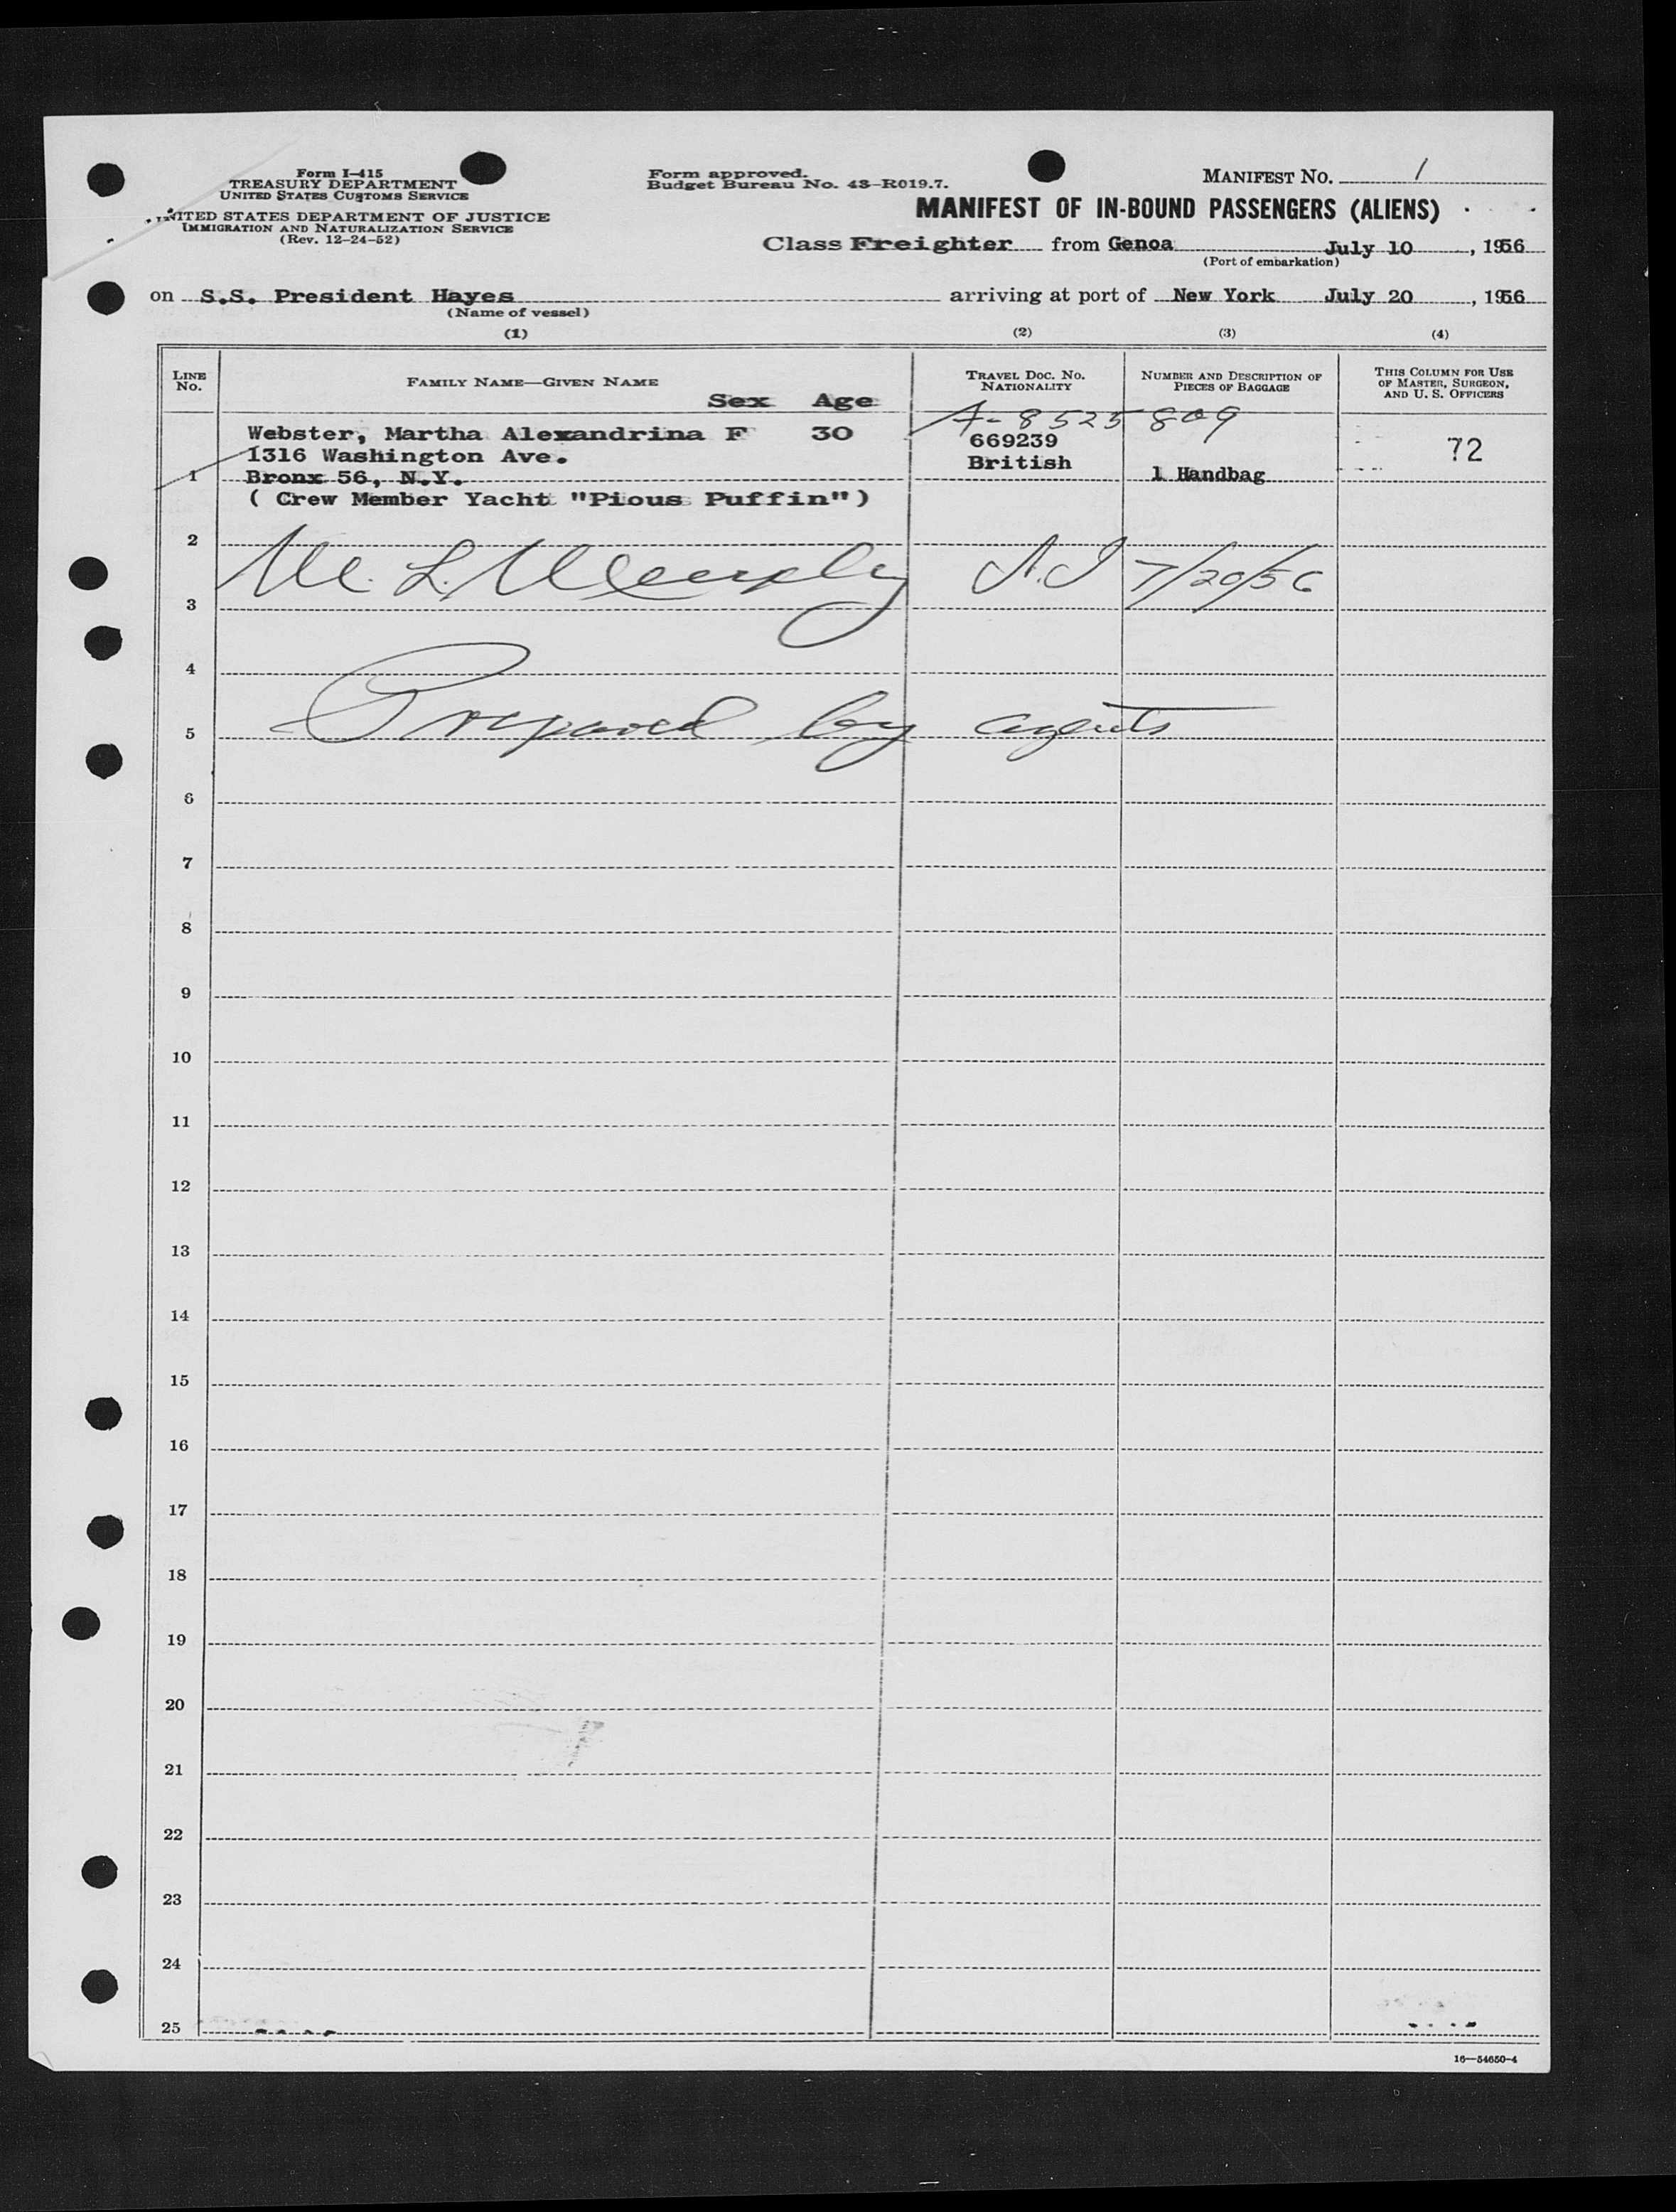 Form I-415
TREASURY DEPARTMENT
UNITED STATES CUSTOMS SERVICE
UNITED STATES DEPARTMENT OF JUSTICE
IMMIGRATION AND NATURALIZATION SERVICE
(Rev. 12-24-52)
Form approved.
Budget Bureau No. 43-R019.7.
MANIFEST No. 1
MANIFEST OF IN-BOUND PASSENGERS (ALIENS)
Class Freighter from Genoa July 10, 1956
(Port of embarkation)
on S.S. President Hayes arriving at port of New York July 20, 1956
(Name of vessel)
(1) (2) (3) (4)
LINE No. FAMILY NAME—GIVEN NAME Sex Age TRAVEL DOC. No. NATIONALITY NUMBER AND DESCRIPTION OF PIECES OF BAGGAGE THIS COLUMN FOR USE OF MASTER, SURGEON, AND U. S. OFFICERS
A-8525809
Webster, Martha Alexandrina F 30 669239 72
1316 Washington Ave. British
1 Bronx 56, N.Y. 1 Handbag
( Crew Member Yacht "Pious Puffin")
2
M. L. Murphy 7/20/56
3
4
Prepared by agents
5
6
7
8
9
10
11
12
13
14
15
16
17
18
19
20
21
22
23
24
25
16—54650-4